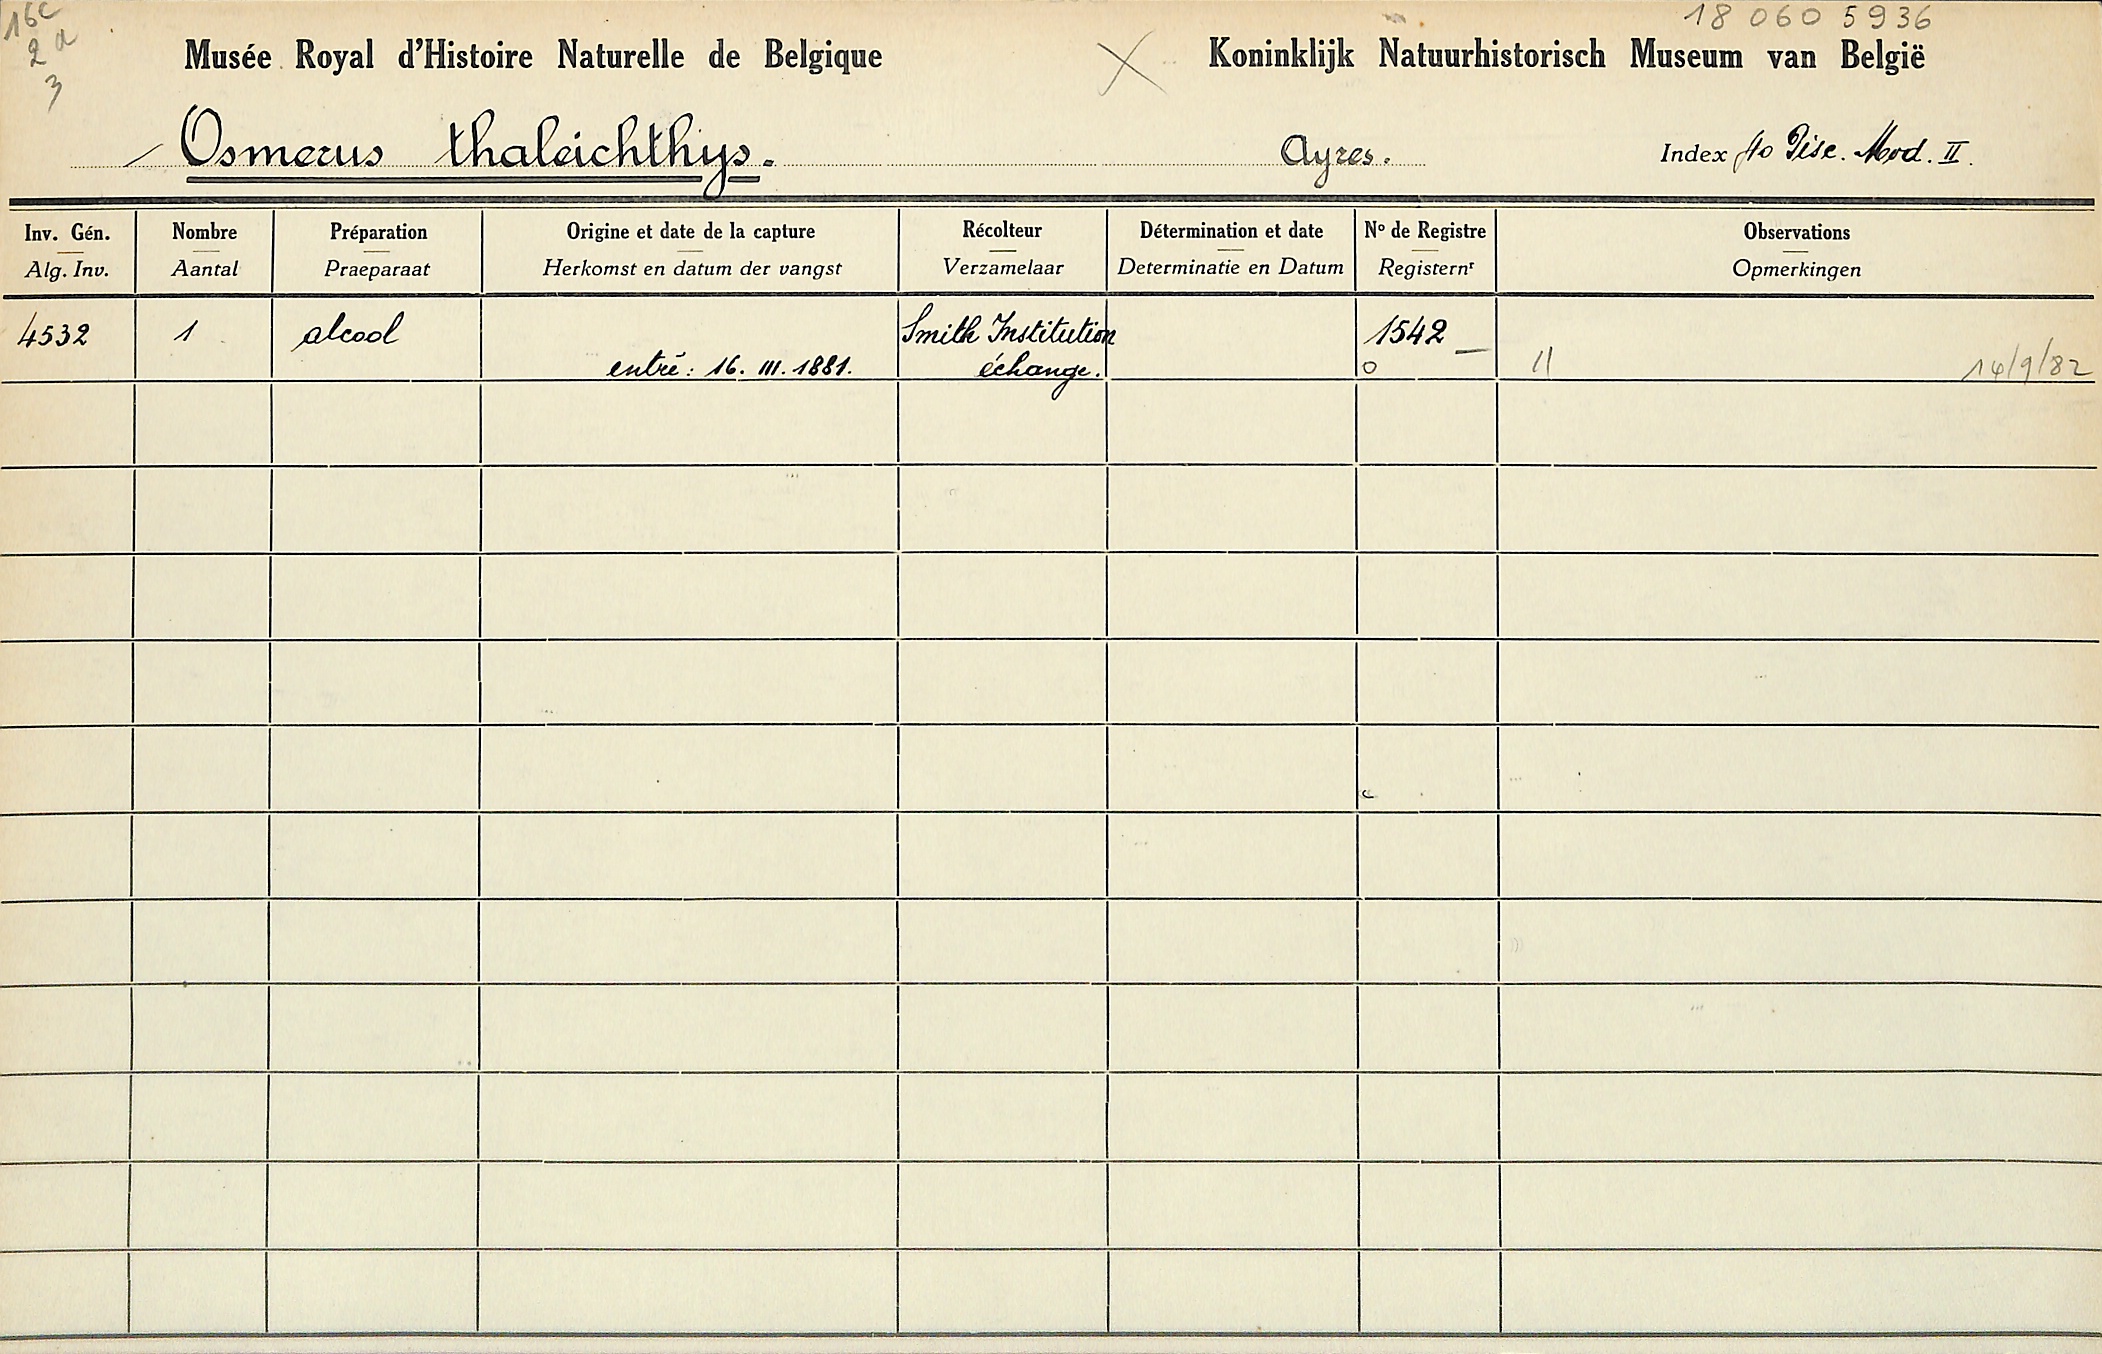 16c 18 060 5936
2 d
3
Musée Royal d'Histoire Naturelle de Belgique X Koninklijk Natuurhistorisch Museum van België
Osmerus thaleichthys. Ayres. Index 40 Pisc. Mod. II.
Inv. Gén. Nombre Préparation Origine et date de la capture Récolteur Détermination et date N° de Registre Observations
Alg. Inv. Aantal Praeparaat Herkomst en datum der vangst Verzamelaar Determinatie en Datum Registernr Opmerkingen
4532 1 alcool Smith Institution 1542 —
entré: 16. III. 1881. échange. o 14/9/82